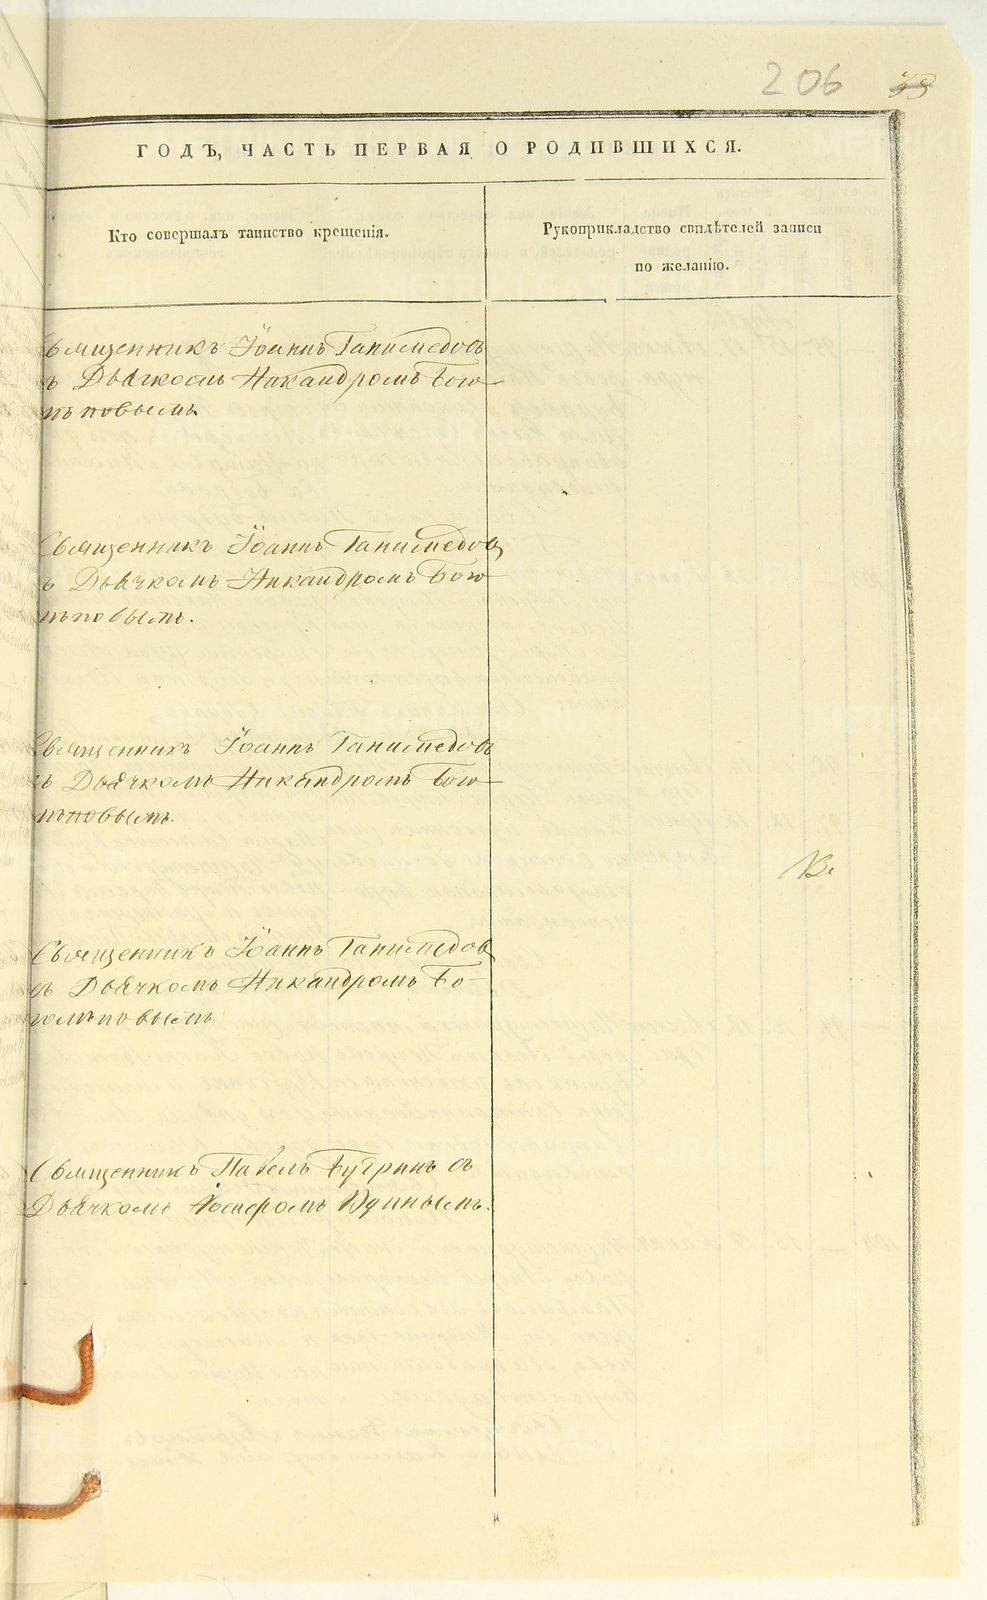 206
ГОДЪ, ЧАСТЬ ПЕРВАЯ О РОДИВШИХСЯ.
Кто совершалъ таинство крещенія.
Рукоприкладство свидѣтелей записи
по желанію.
Священникъ Іоаннъ Ганимедовъ
съ Дьячкомъ Никандромъ Бого
лѣповымъ.
Священникъ Іоаннъ Ганимедовъ
съ Дьячкомъ Никандромъ Бого
лѣповымъ.
Священникъ Іоаннъ Ганимедовъ
съ Дьячкомъ Никандромъ Бого
лѣповымъ.
Священникъ Іоаннъ Ганимедовъ
съ Дьячкомъ Никандромъ Бо-
голѣповымъ
Священникъ Павелъ Бугринъ съ
Дьячкомъ Юдинымъ.